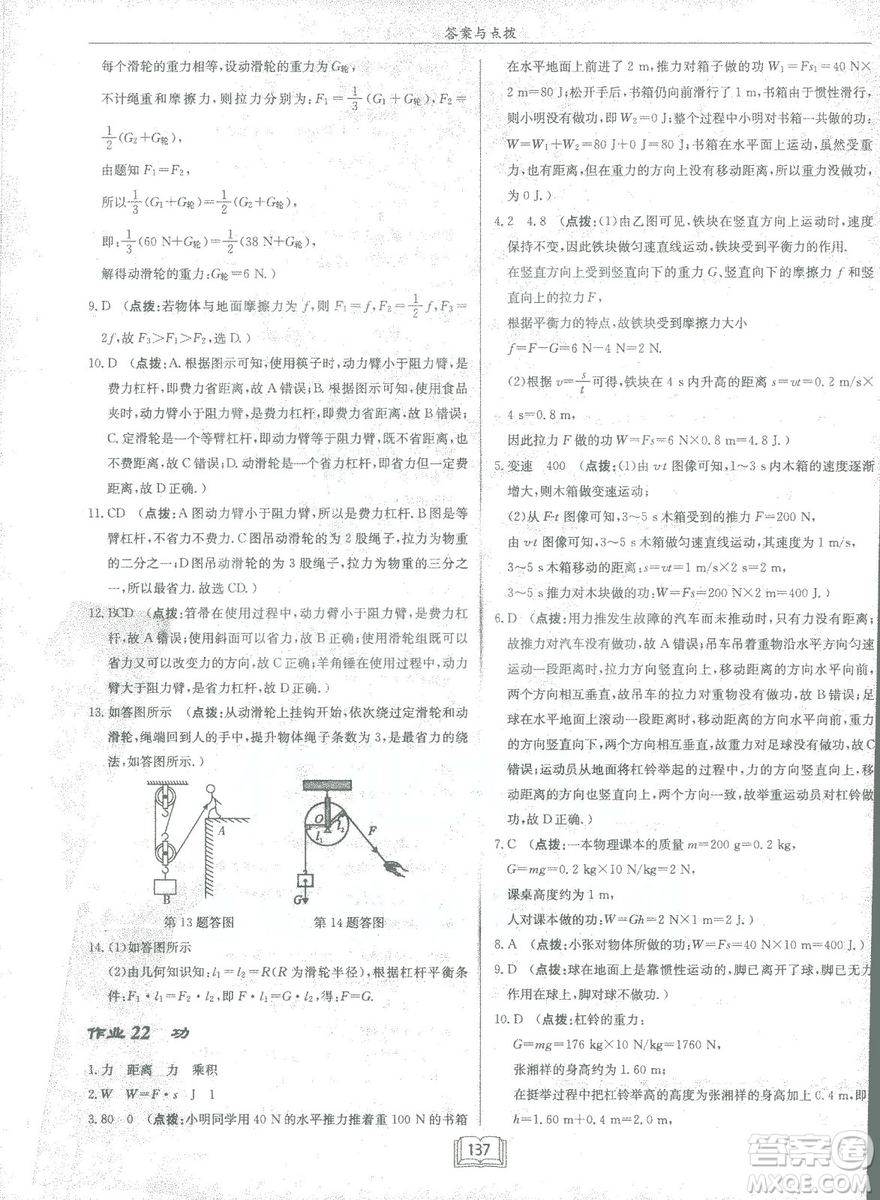 答案与点拨
每个滑轮的重力相等,设动滑轮的重力为G轮,
不计绳重和摩擦力,则拉力分别为:F₁=1/3(G₁+G轮)=
1/2(G₂+G轮),
由题知 F₁=F₂,
所以1/3(G₁+G轮)=1/2(G₂+G轮),
即:1/3(60 N+G轮)=1/2(38 N+G轮),
解得动滑轮的重力:G轮=6 N.)
9. D (点拨:若物体与地面摩擦力为 f,则 F₁=f,F₂=1/2f,F₃=
2f,故 F₃>F₁>F₂,选 D.)
10. D (点拨:A. 根据图示可知,使用筷子时,动力臂小于阻力臂,是
费力杠杆,即费力省距离,故 A 错误;B. 根据图示可知,使用食品
夹时,动力臂小于阻力臂,是费力杠杆,但费力省距离,故 B 错误;
C. 定滑轮是一个等臂杠杆,不能省力,但能改变用力方向,故 C 错
误;D. 动滑轮的动力臂等于阻力臂二倍,是省力杠杆,省力但一定费
距离,故 D 正确.)
11. CD (点拨:A 图动力臂小于阻力臂,所以是费力杠杆. B 图是等
臂杠杆,不省力. C 图吊动滑轮的为 2 股绳子,拉力为物重
的二分之一;D 图吊动滑轮的为 3 股绳子,拉力为物重的三分之
一,所以最省力. 故选 CD.)
12. BCD (点拨:笤帚在使用过程中,动力臂小于阻力臂,是费力杠
杆,故 A 错误;使用斜面可以省力,故 B 正确;使用滑轮组既可以
省力又可以改变力的方向,故 C 正确;羊角锤在使用过程中,动力
臂大于阻力臂,是省力杠杆,故 D 正确.)
13. 如答图所示 (点拨:从动滑轮上挂钩开始,依次绕过定滑轮和动
滑轮,绳端回到人的手中,提升物体绳子条数为 3,是最省力的绕
法,如答图所示.)
A
B
O
l₁
l₂
F
G
第13题答图 第14题答图
14. (1)如答图所示
(2)由几何知识知:l₁=l₂=R(R 为滑轮半径),根据杠杆平衡条
件:F₁·l₁=F₂·l₂,即 F·l₂=G·l₁,所以 F=G.
作业 22 功
1. 力 距离 力 乘积
2. W W=F·s J 1
3. 80 0 (点拨:小明同学用 40 N 的水平推力推着重 100 N 的书箱
在水平地面上前进了 2 m,推力对箱子做的功 W₁=Fs₁=40 N×
2 m=80 J;松开手后,书箱仍向前滑行了 1 m,书箱由于惯性滑行,
则小明没有做功,即 W₂=0 J;整个过程中小明对书箱一共做的功:
W=W₁+W₂=80 J+0 J=80 J;书箱在水平面上运动,虽然受重
力,但在重力的方向上没有移动距离,所以重力没有做功,所以重力做功
为 0 J.)
4. 2 4.8 (点拨:(1)由乙图可见,铁块在竖直方向上运动时,速度
保持不变,因此铁块做匀速直线运动,受到平衡力的作用.
在竖直方向上受到竖直向下的重力 G、竖直向下的摩擦力 f 和竖
直向上的拉力 F,
根据平衡力的特点,故铁块受到摩擦力大小
f=F−G=6 N−4 N=2 N.
(2)根据 v=s/t可得,铁块在 4 s 内升高的距离:s=vt=0.2 m/s×
4 s=0.8 m,
因此拉力 F 做的功 W=Fs=6 N×0.8 m=4.8 J.)
5. 变速 400 (点拨:(1)由 v-t 图像可知,1~3 s 内木箱的速度逐渐
增大,则木箱做变速运动;
(2)从 F-t 图像可知,3~5 s 木箱受到的推力 F=200 N,
由 v-t 图像可知,3~5 s 木箱做匀速直线运动,速度 v=1 m/s,
3~5 s 木箱移动的距离:s=vt=1 m/s×2 s=2 m,
3~5 s 推力对木块做的功:W=Fs=200 N×2 m=400 J.)
6. D (点拨:用力推发生故障的汽车而未推动时,只有力没有距离;
故推力对汽车没有做功,故 A 错误;吊车吊着重物沿水平方向匀速
移动一段距离时,拉力方向竖直向上,移动距离的方向水平向前,
两个方向相互垂直,故吊车的拉力对重物没有做功,故 B 错误;足
球在水平地面上滚动一段距离时,移动距离的方向水平向前,重力
的方向竖直向下,两个方向相互垂直,故重力对足球没有做功,故 C
错误;运动员从地面将杠铃举起的过程中,力的方向竖直向上,
移动距离的方向也竖直向上,两个方向一致,故举重运动员对杠铃做
功,故 D 正确.)
7. C (点拨:一本物理课本的质量 m=200 g=0.2 kg,
G=mg=0.2 kg×10 N/kg=2 N,
课桌高度约为 1 m,
人对课本做的功:W=Gh=2 N×1 m=2 J.)
8. A (点拨:小张对物体所做的功:W=Fs=40 N×10 m=400 J.)
9. D (点拨:球在地面上是靠惯性运动的,脚已离开了球,脚对球
没有作用力,所以没做功.)
10. D (点拨:杠铃的重力:
G=mg=176 kg×10 N/kg=1760 N,
张湘祥的身高约为 1.60 m;
在挺举过程中把杠铃举起的高度为张湘祥的身高加上 0.4 m,即
h=1.60 m+0.4 m=2 m,
137
答案圈
MXQE.COM